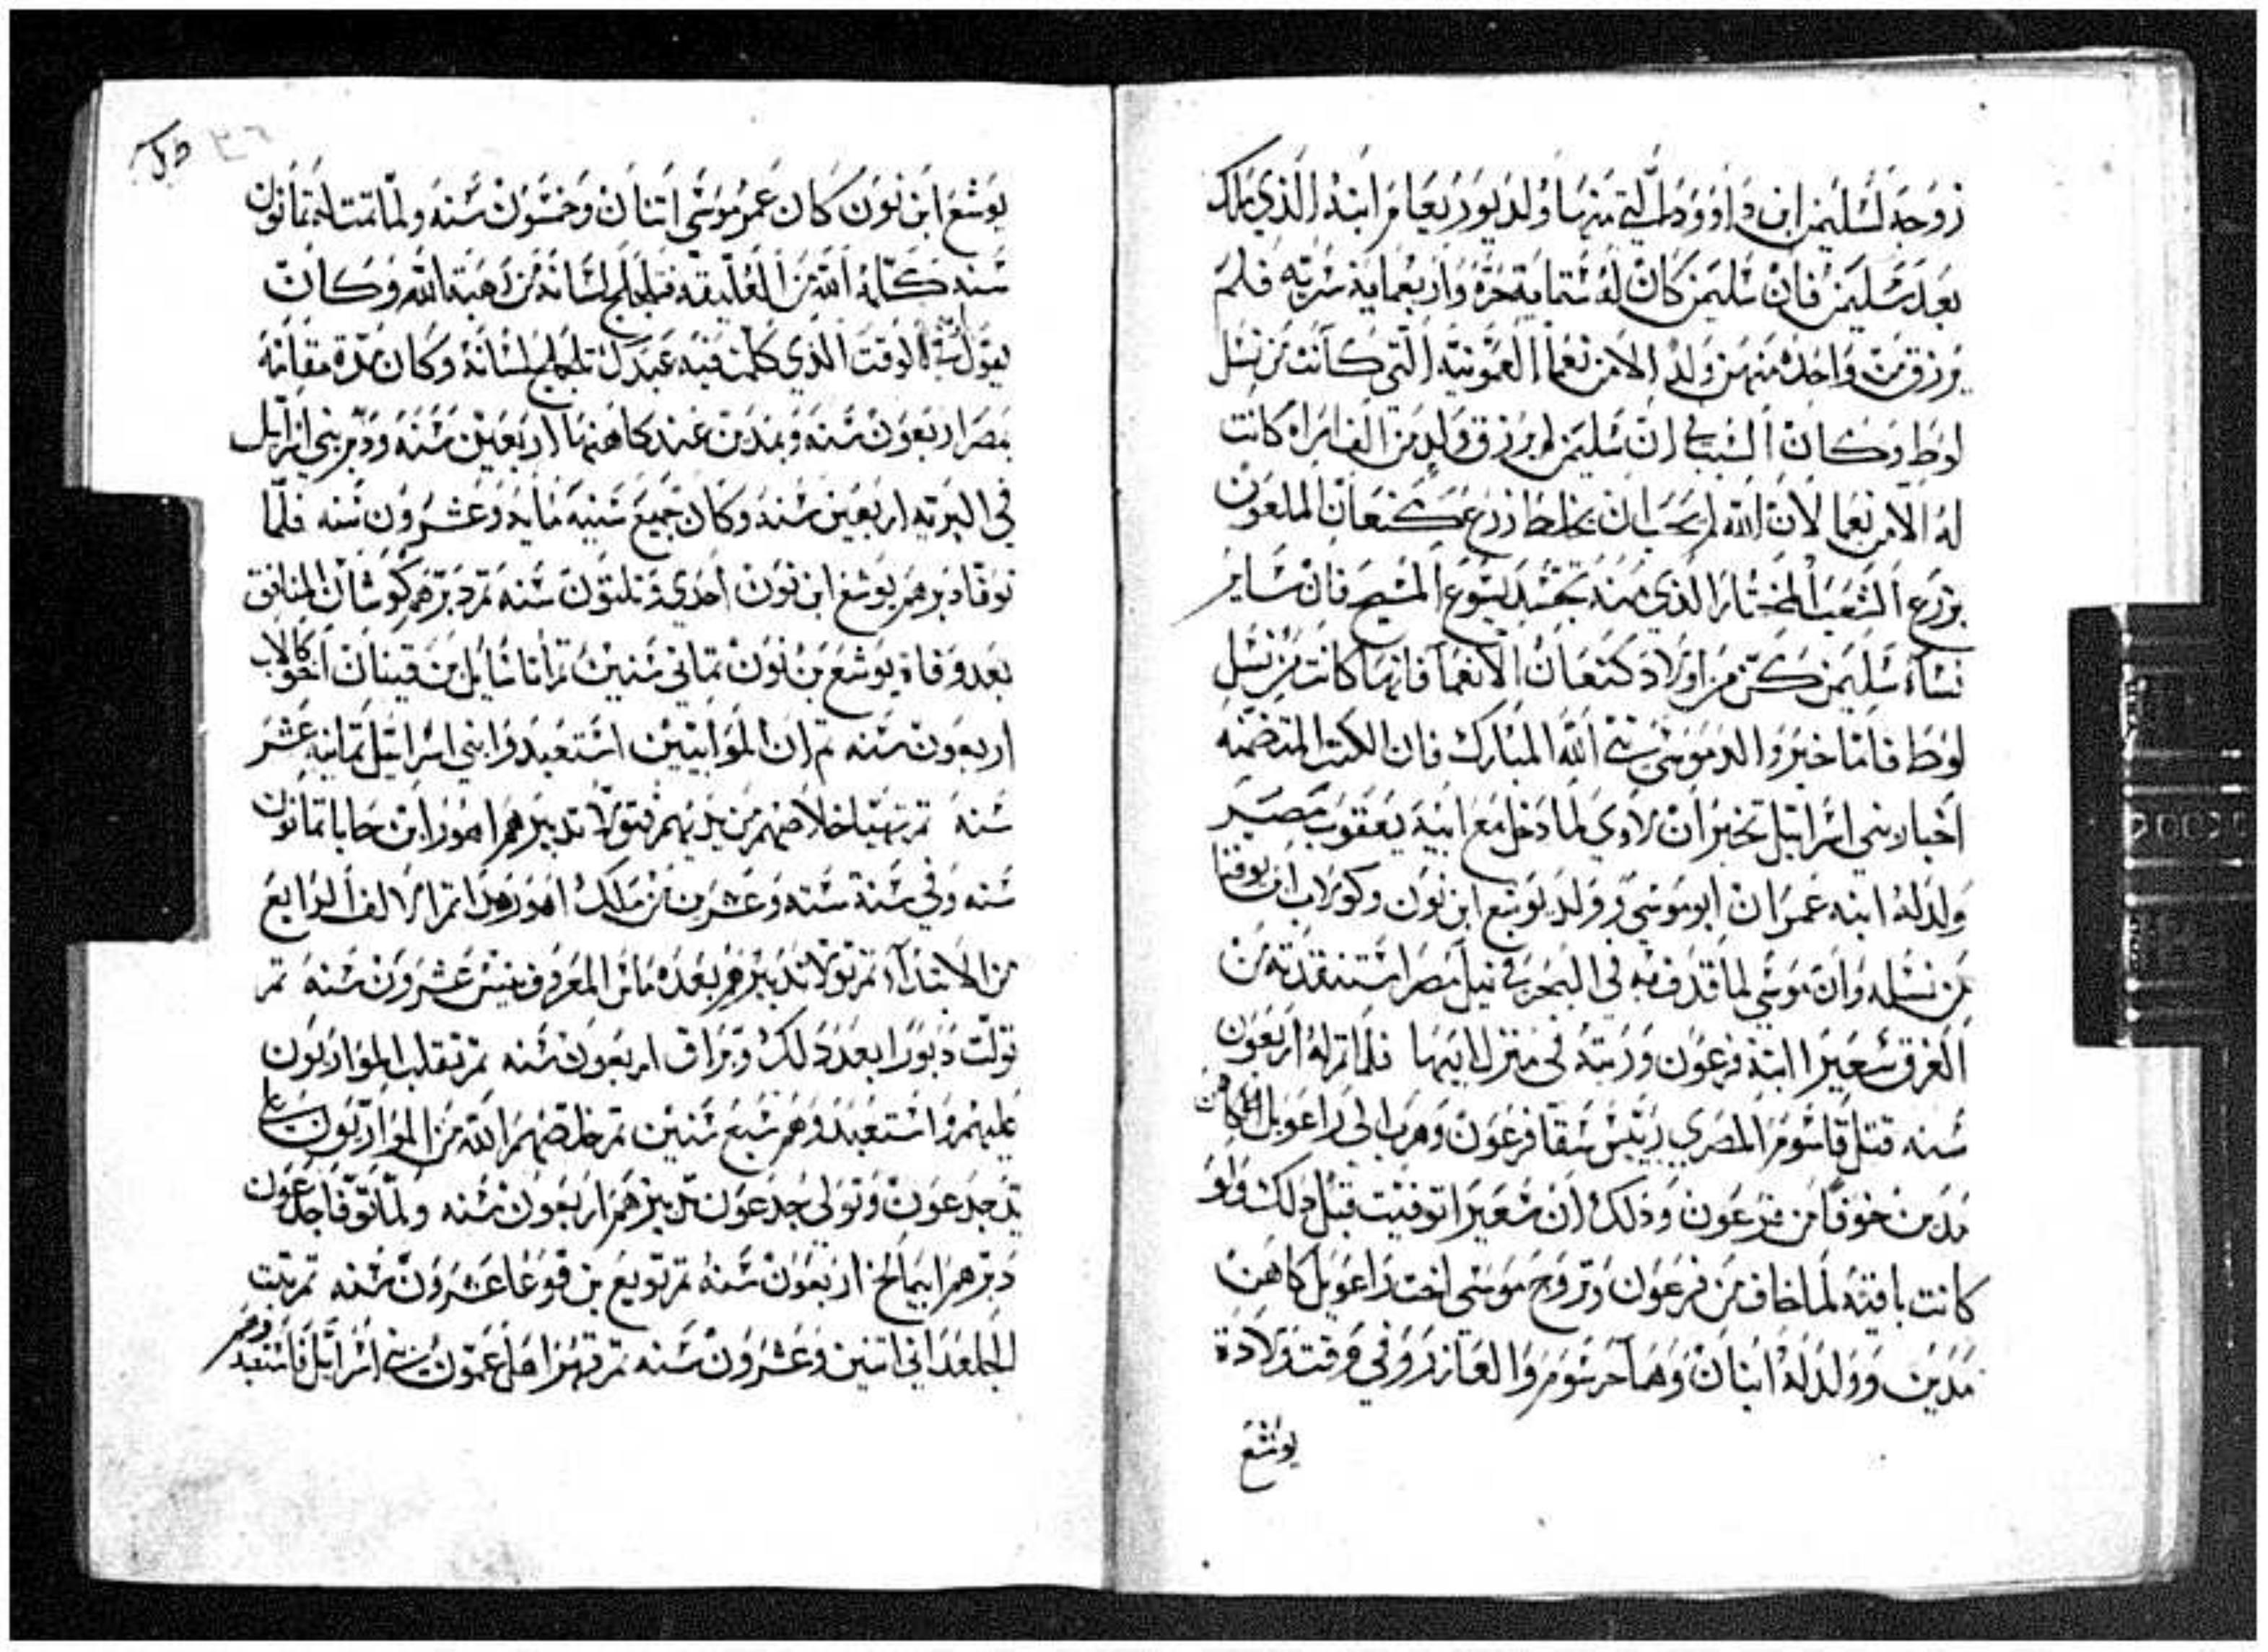 زوجه لسليمن ابن داوود التي منها ولد يوربعام ابنه الذي ملك
بعد سليمن فان سليمن كان له ستماية حرة واربعماية سرية فلم
يرزق من واحده منهن ولد الا من نعما العمونية التي كانت من نسل
لوط وكان السبب في ان سليمن لم يرزق ولد من الف امراه كانت
له الا من نعما لان الله لم يحب ان يخلط زرع كنعان الملعون
بزرع الشعب المختار الذي منه تجسد يسوع المسيح فان ساير
نساء سليمن كن من اولاد كنعان الا نعما فانها كانت من نسل
لوط فاما خبر والد موسى نبي الله المبارك فان الكتب المتضمنه
اخبار بني اسرائيل تخبر ان لاوي لما دخل مع ابيه يعقوب مصر
ولد له ابنه عمران ابو موسى وولد يوشع ابن نون وكولاب ابن يوفنا
من نسله وان موسى لما قدف به في البحر في نيل مصر استنقدته من
الغرق شعيرا ابنة فرعون وربته في منزل ابيها فلما تم له اربعون
سنه قتل قاسوم المصري رييس سقا فرعون وهرب الى راعويل الكاهن
مدين خوفا من فرعون وذلك ان شعيرا توفيت قبل ذلك ولو
كانت باقيه لما خاف من فرعون وتزوج موسى اخت راعويل كاهن
مدين وولد له ابنان وهما جرسوم والعازر وفي وقت ولادة
يوشع
يوشع ابن نون كان عمر موسى اتنان وخمسون سنه ولما تمت له تمانون
سنه كلمه الله من العليقه فتلجلج لسانه من هيبة الله وكان
يقول الوقت الذي كلمت فيه عبدك تلجلج لسانه وكان مدة مقامه
بمصر اربعون سنه وبمدين عند كاهنها اربعين سنه ودبر بني اسرايل
في البريه اربعين سنه وكان جميع سنيه مايه وعشرون سنه فلما
توفا دبرهم يوشع ابن نون احدى وتلتون سنه تم دبرهم كوشان المنافق
بعد وفاة يوشع بن نون تماني سنين تم اتنايل بن قينان اخو كالاب
اربعون سنه تم ان الموابيين استعبدوا بني اسرائيل تمانية عشر
سنه تم تهيا خلاصهم من يديهم فتولا تدبيرهم اهور ابن حابا تمانون
سنه وفي سنة سته وعشرين من ملك اهور هدا تم الالف الرابع
من الابتداء تم تولا تدبيرهم بعده المعروف عشرون سنه تم
تولت دبورا بعد ذلك وبراق اربعون سنه تم تقلب الموارنون
عليهم واستعبدوهم سبع سنين تم خلصهم الله من الموارنون على
يد جدعون وتولي جدعون تدبيرهم اربعون سنه ولما توفا جدعون
دبرهم ابيمالخ اربعون سنه تم تويع بن قوعا عشرون سنه تم
الجلعداني اتنين وعشرون سنه تم قهر اهل عمون بني اسرائيل فاستعبدوهم